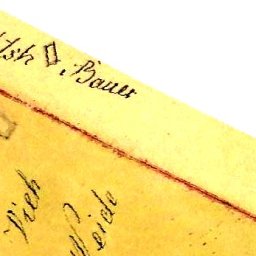 Bauer
Vieh
Weide